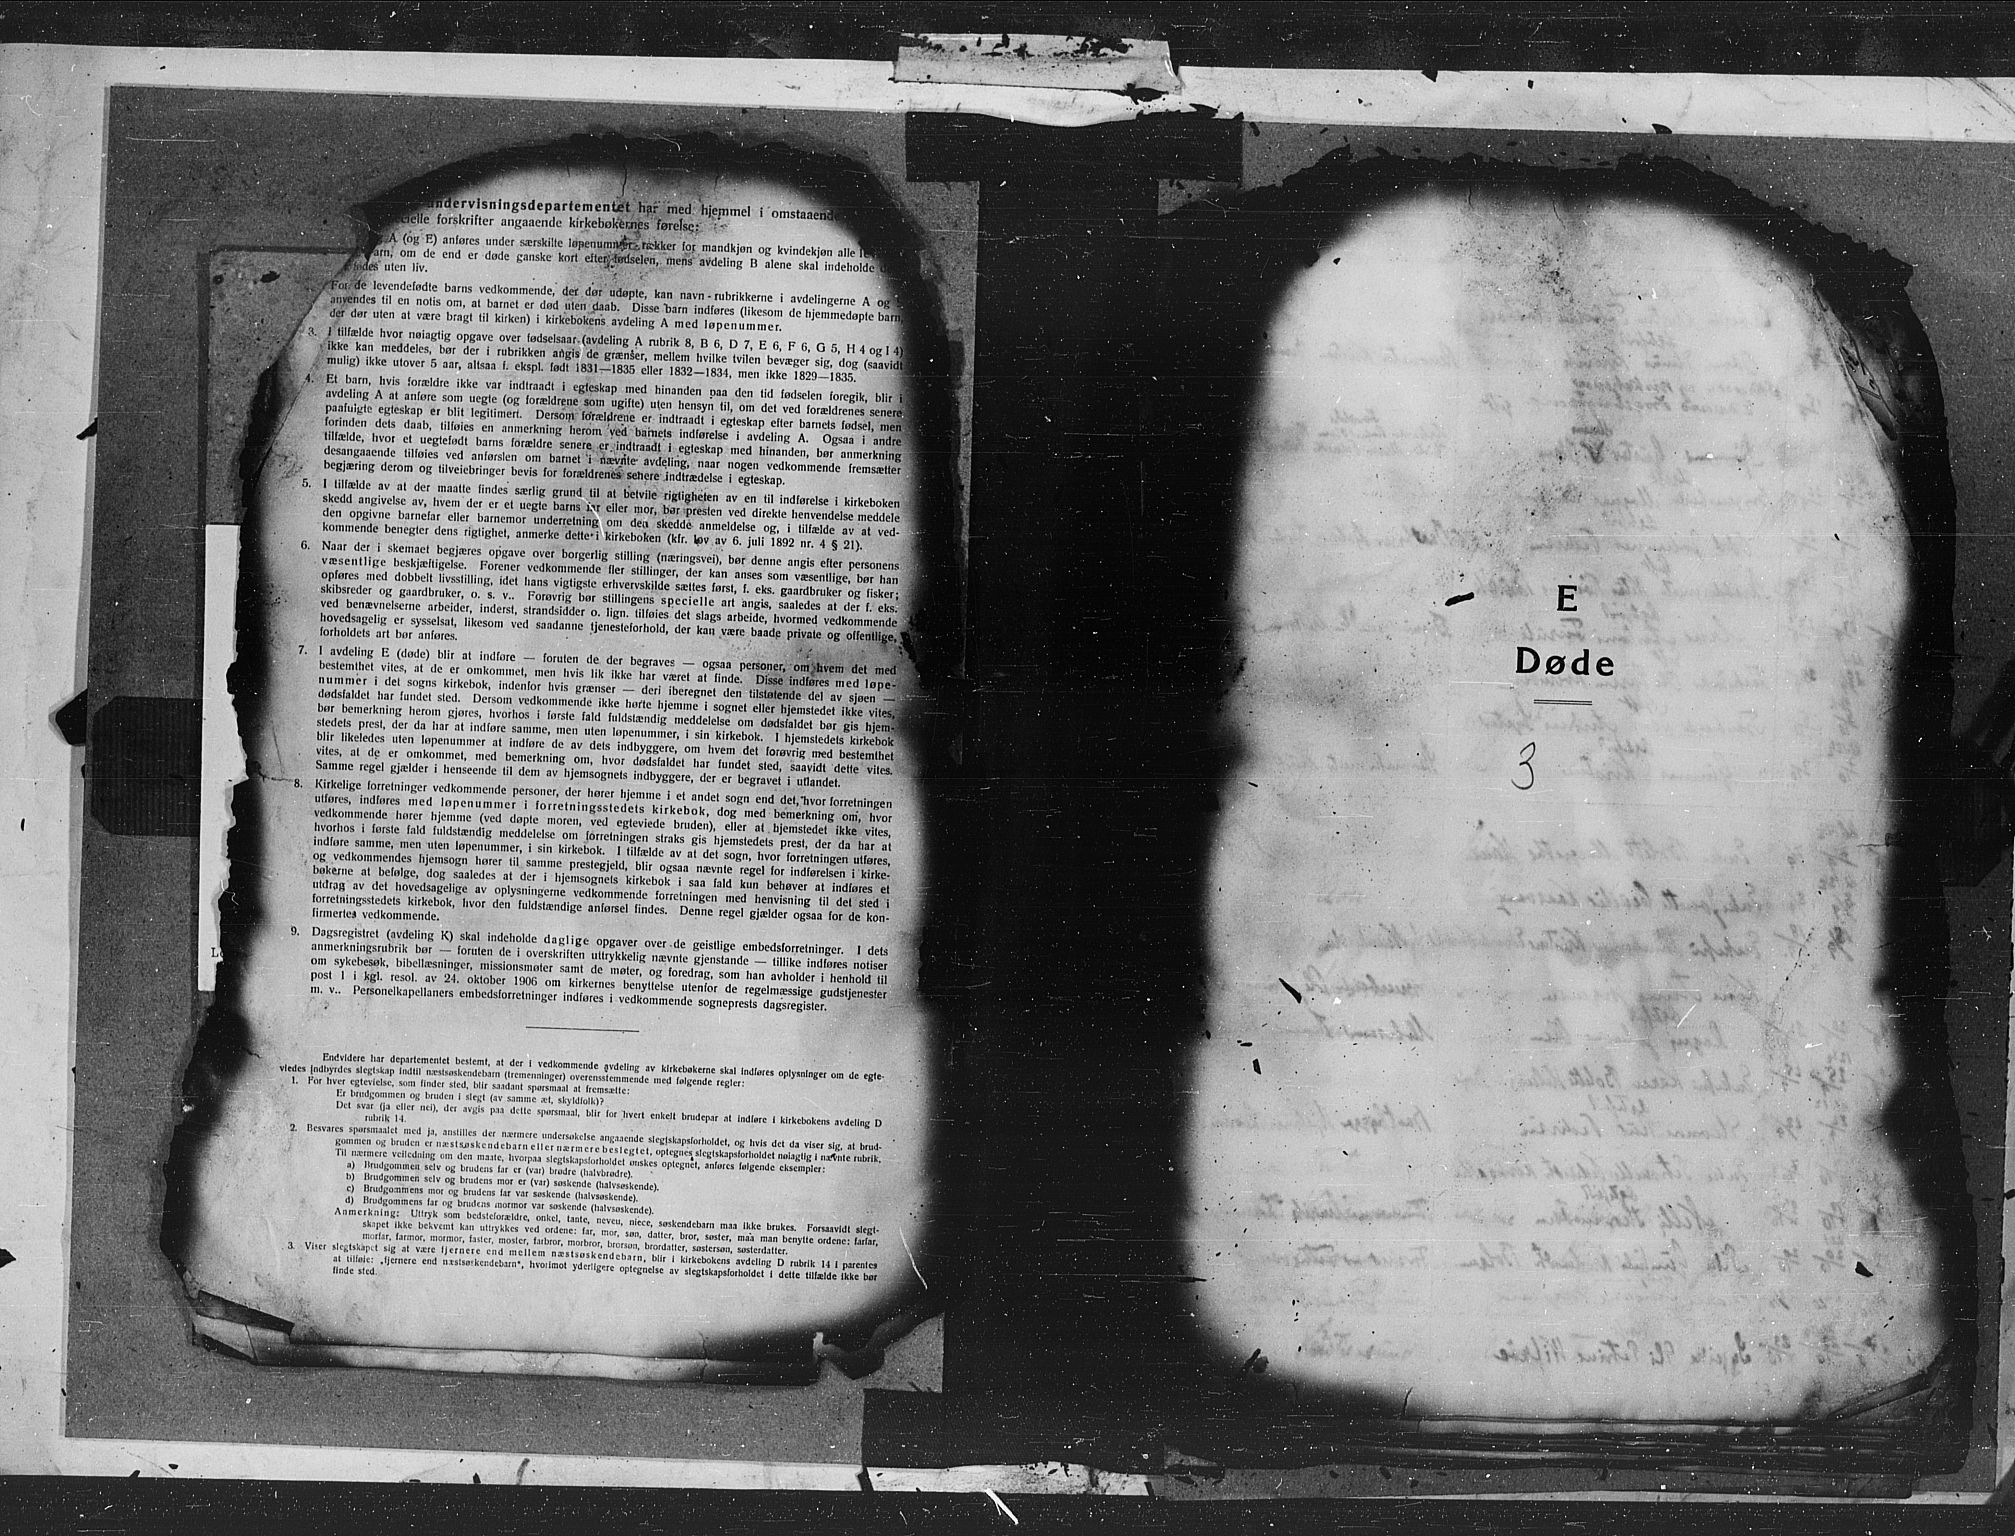 undervisningsdepartementet har med hjemmel i omstaaende
specielle forskrifter angaaende kirkebøkernes førelse:
A (og E) anføres under særskilte løpenummer-rækker for mandkjøn og kvindekjøn alle
barn, om de end er døde ganske kort efter fødselen, mens avdeling B alene skal indeholde
fødes uten liv.
For de levendefødte barns vedkommende, der dør udøpte, kan navn-rubrikkerne i avdelingerne A og
anvendes til en notis om, at barnet er død uten daab. Disse barn indføres (likesom de hjemmedøpte barn,
der dør uten at være bragt til kirken) i kirkebokens avdeling A med løpenummer.
3. I tilfælde hvor nøiagtig opgave over fødselsaar (avdeling A rubrik 8, B 6, D 7, E 6, F 6, G 5, H 4 og I 4)
ikke kan meddeles, bør der i rubrikken angis de grænser, mellem hvilke tvilen bevæger sig, dog (saavidt
mulig) ikke utover 5 aar, altsaa f. ekspl. født 1831—1835 eller 1832—1834, men ikke 1829—1835.
4. Et barn, hvis forældre ikke var indtraadt i egteskap med hinanden paa den tid fødselen foregik, blir i
avdeling A at anføre som uegte (og forældrene som ugifte) uten hensyn til, om det ved forældrenes senere
paafulgte egteskap er blit legitimert. Dersom forældrene er indtraadt i egteskap efter barnets fødsel, men
forinden dets daab, tilføies en anmerkning herom ved barnets indførelse i avdeling A. Ogsaa i andre
tilfælde, hvor et uegtefødt barns forældre senere er indtraadt i egteskap med hinanden, bør anmerkning
desangaaende tilføies ved anførslen om barnet i nævnte avdeling, naar nogen vedkommende fremsætter
begjæring derom og tilveiebringer bevis for forældrenes senere indtrædelse i egteskap.
5. I tilfælde av at der maatte findes særlig grund til at betvile rigtigheten av en til indførelse i kirkeboken
skedd angivelse av, hvem der er et uegte barns far eller mor, bør presten ved direkte henvendelse meddele
den opgivne barnefar eller barnemor underretning om den skedde anmeldelse og, i tilfælde av at ved-
kommende benegter dens rigtighet, anmerke dette i kirkeboken (kfr. lov av 6. juli 1892 nr. 4 § 21).
6. Naar der i skemaet begjæres opgave over borgerlig stilling (næringsvei), bør denne angis efter personens
væsentlige beskjæftigelse. Forener vedkommende fler stillinger, der kan anses som væsentlige, bør han
opføres med dobbelt livsstilling, idet hans vigtigste erhvervskilde sættes først, f. eks. gaardbruker og fisker;
skibsreder og gaardbruker, o. s. v.. Forøvrig bør stillingens specielle art angis, saaledes at der f. eks.
ved benævnelserne arbeider, inderst, strandsidder o. lign. tilføies det slags arbeide, hvormed vedkommende
hovedsagelig er sysselsat, likesom ved saadanne tjenesteforhold, der kan være baade private og offentlige,
forholdets art bør anføres.
7. I avdeling E (døde) blir at indføre — foruten de der begraves — ogsaa personer, om hvem det med
bestemthet vites, at de er omkommet, men hvis lik ikke har været at finde. Disse indføres med løpe-
nummer i det sogns kirkebok, indenfor hvis grænser — deri iberegnet den tilstøtende del av sjøen —
dødsfaldet har fundet sted. Dersom vedkommende ikke hørte hjemme i sognet eller hjemstedet ikke vites,
bør bemerkning herom gjøres, hvorhos i første fald fuldstændig meddelelse om dødsfaldet bør gis hjem-
stedets prest, der da har at indføre samme, men uten løpenummer, i sin kirkebok. I hjemstedets kirkebok
blir likeledes uten løpenummer at indføre de av dets indbyggere, om hvem det forøvrig med bestemthet
vites, at de er omkommet, med bemerkning om, hvor dødsfaldet har fundet sted, saavidt dette vites.
Samme regel gjælder i henseende til dem av hjemsognets indbyggere, der er begravet i utlandet.
8. Kirkelige forretninger vedkommende personer, der hører hjemme i et andet sogn end det, hvor forretningen
utføres, indføres med løpenummer i forretningsstedets kirkebok, dog med bemerkning om, hvor
vedkommende hører hjemme (ved døpte moren, ved egteviede bruden), eller at hjemstedet ikke vites,
hvorhos i første fald fuldstændig meddelelse om forretningen straks gis hjemstedets prest, der da har at
indføre samme, men uten løpenummer, i sin kirkebok. I tilfælde av at det sogn, hvor forretningen utføres,
og vedkommendes hjemsogn hører til samme prestegjeld, blir ogsaa nævnte regel for indførelsen i kirke-
bøkerne at befølge, dog saaledes at der i hjemsognets kirkebok i saa fald kun behøver at indføres et
utdrag av det hovedsagelige av oplysningerne vedkommende forretningen med henvisning til det sted i
forretningsstedets kirkebok, hvor den fuldstændige anførsel findes. Denne regel gjælder ogsaa for de kon-
firmertes vedkommende.
9. Dagsregistret (avdeling K) skal indeholde daglige opgaver over de geistlige embedsforretninger. I dets
anmerkningsrubrik bør — foruten de i overskriften uttrykkelig nævnte gjenstande — tillike indføres notiser
om sykebesøk, bibellæsninger, missionsmøter samt de møter, og foredrag, som han avholder i henhold til
post 1 i kgl. resol. av 24. oktober 1906 om kirkernes benyttelse utenfor de regelmæssige gudstjenester
m. v.. Personelkapellaners embedsforretninger indføres i vedkommende sogneprests dagsregister.
Endvidere har departementet bestemt, at der i vedkommende avdeling av kirkebøkerne skal indføres oplysninger om de egte-
viedes indbyrdes slegtskap indtil næstsøskendebarn (tremenninger) overensstemmende med følgende regler:
1. For hver egtevielse, som finder sted, blir saadant spørsmaal at fremsætte:
Er brudgommen og bruden i slegt (av samme æt, skyldfolk)?
Det svar (ja eller nei), der avgis paa dette spørsmaal, blir for hvert enkelt brudepar at indføre i kirkebokens avdeling D
rubrik 14.
2. Besvares spørsmaalet med ja, anstilles der nærmere undersøkelse angaaende slegtskapsforholdet, og hvis det da viser sig, at brud-
gommen og bruden er næstsøskendebarn eller nærmere beslegtet, optegnes slegtskapsforholdet nøiagtig i nævnte rubrik.
Til nærmere veiledning om den maate, hvorpaa slegtskapsforholdet ønskes optegnet, anføres følgende eksempler:
a) Brudgommen selv og brudens far er (var) brødre (halvbrødre).
b) Brudgommen selv og brudens mor er (var) søskende (halvsøskende).
c) Brudgommens mor og brudens far var søskende (halvsøskende).
d) Brudgommens far og brudens mormor var søskende (halvsøskende).
Anmerkning: Uttryk som bedsteforældre, onkel, tante, neveu, niece, søskendebarn maa ikke brukes. Forsaavidt slegt-
skapet ikke bekvemt kan uttrykkes ved ordene: far, mor, søn, datter, bror, søster, maa man benytte ordene: farfar,
morfar, farmor, mormor, faster, moster, farbror, morbror, brorsøn, brordatter, søstersøn, søsterdatter.
3. Viser slegtskapet sig at være fjernere end mellem næstsøskendebarn, blir i kirkebokens avdeling D rubrik 14 i parentes
at tilføie: „fjernere end næstsøskendebarn“, hvorimot yderligere optegnelse av slegtskapsforholdet i dette tilfælde ikke bør
finde sted.
E
Døde
3